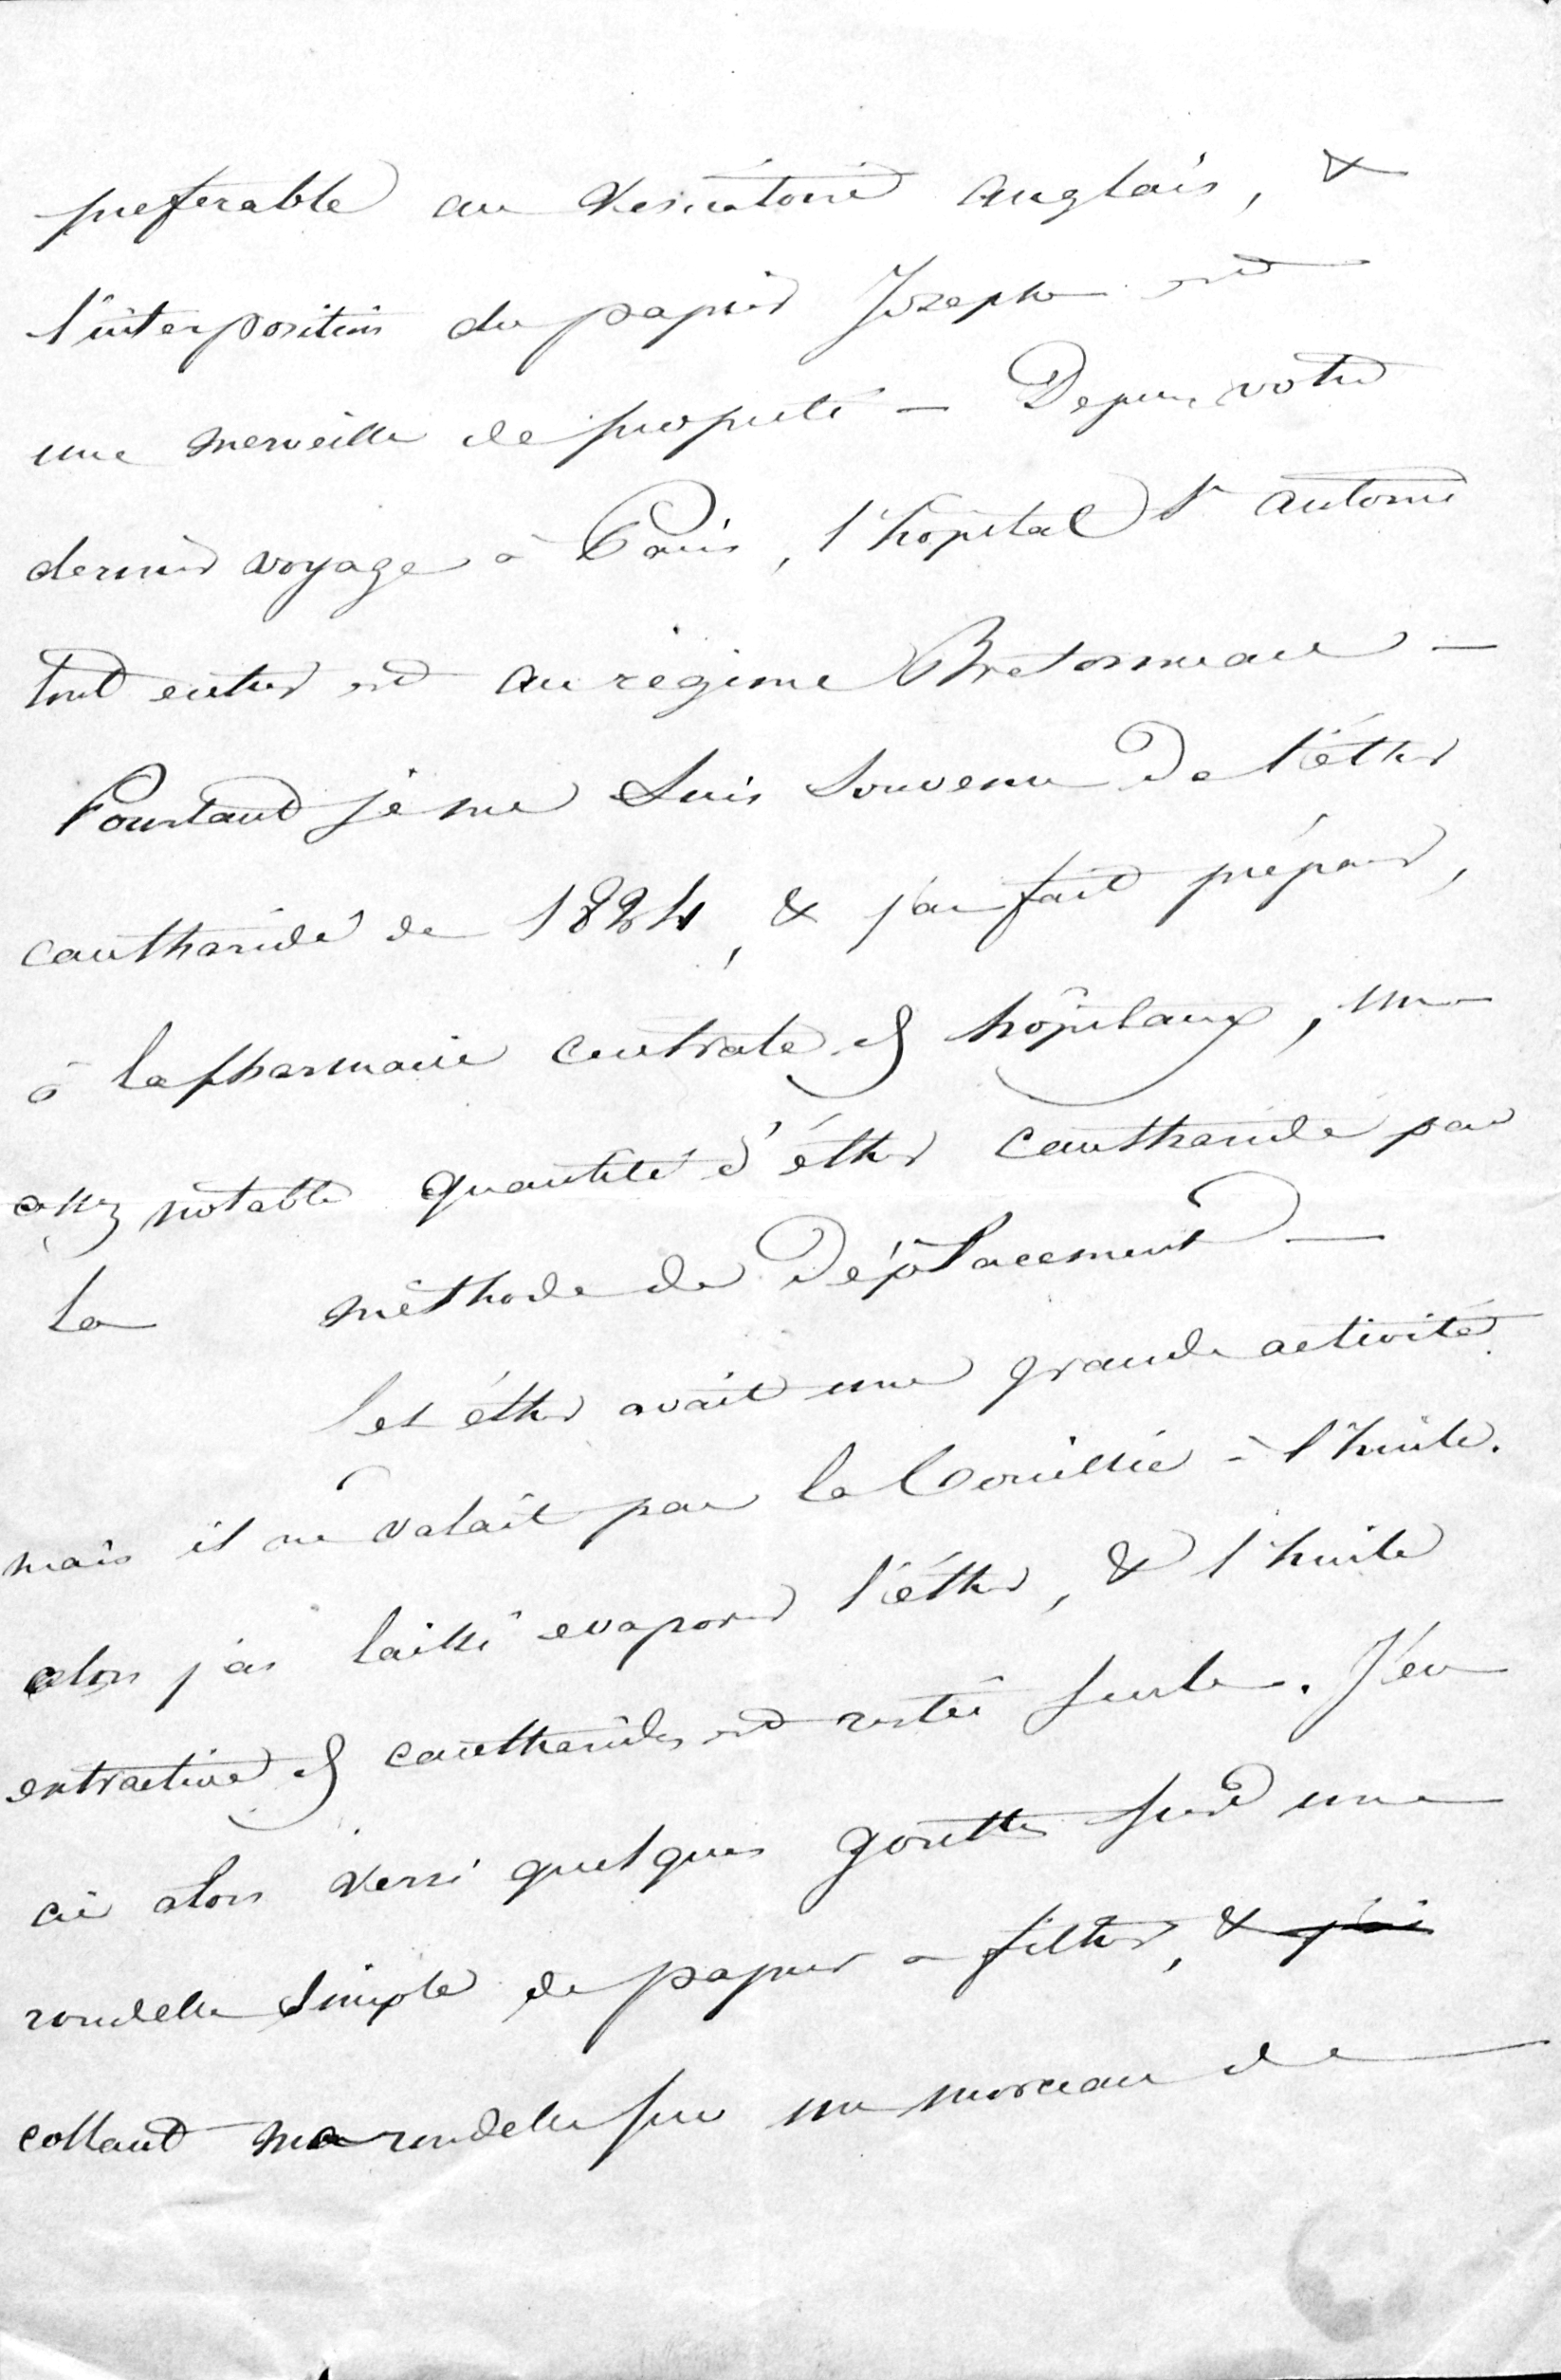 preferable au vesicatoire anglais, &
l'interposition du papier Joseph est
une merveille de propreté — Depuis votre
dernier voyage à Paris, l'hôpital St antoine
tout entier est au régime Bretonneau —
Pourtant je me suis souvenu de l'éther
cantharidé de 1824, & j'ai fait préparer,
à la pharmacie centrale des hôpitaux, une
assez notable quantité d'éther cantharidé par
la méthode de Déplacement —
Cet éther avait une grande activité.
mais il ne valait pas la bouillie à l'huile.
alors j'ai laissé evaporer l'éther, & l'huile
extractive des cantharides est restée seule. J'en
ai alors versé quelques gouttes sur une
rondelle simple de papier a filtrer, & j'ai
collant ma rondelle sur un morceau de